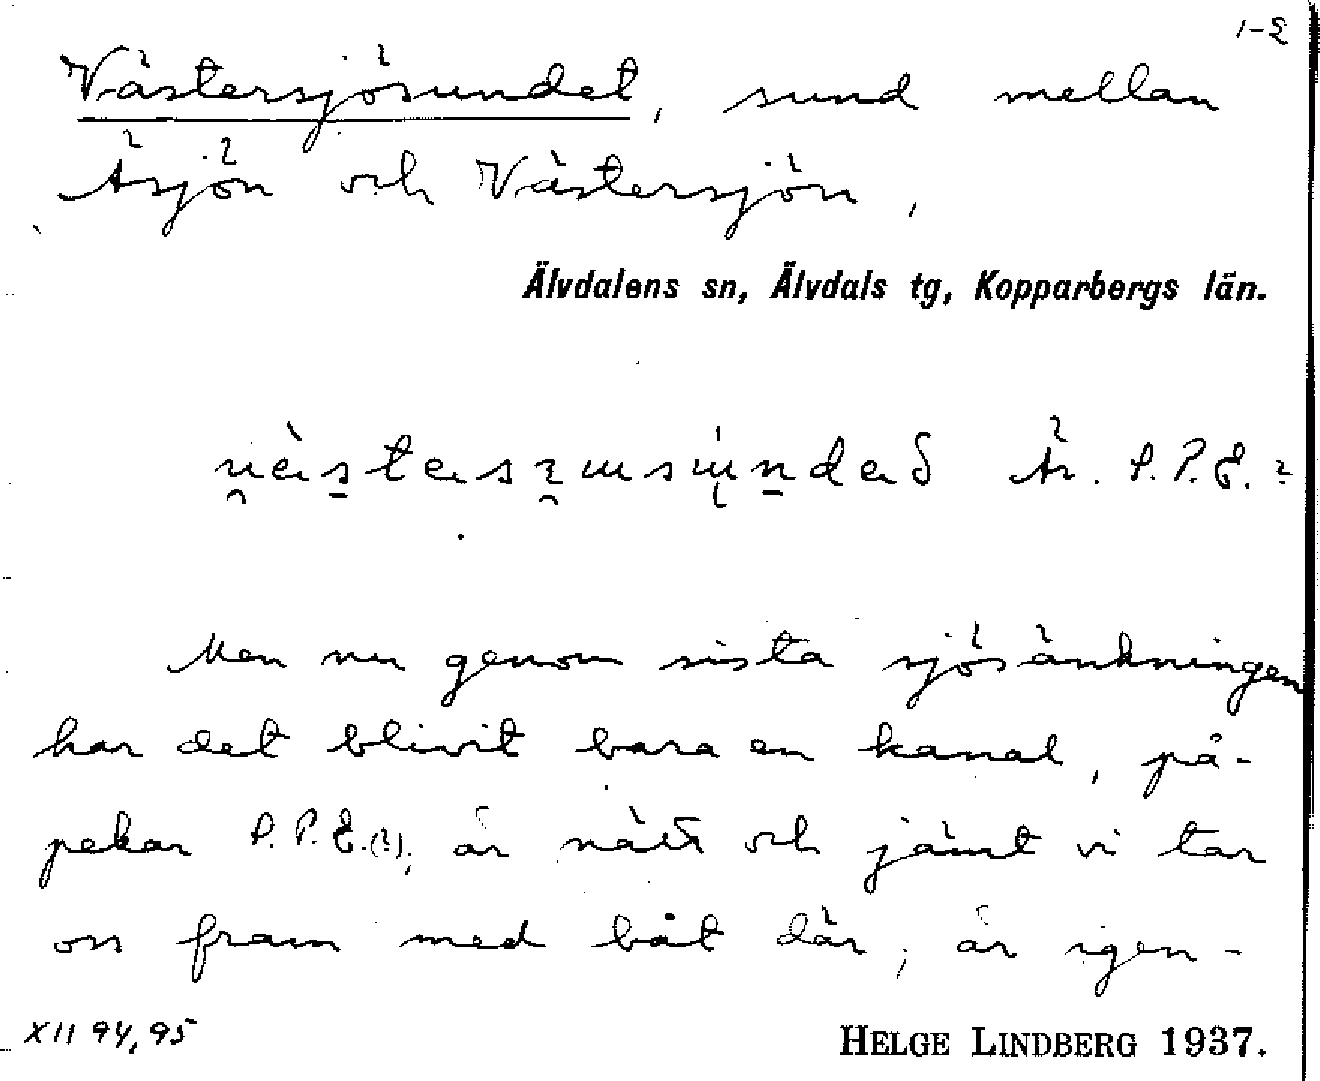 1-2
Västersjösundet, sund mellan
Åsjön och Västersjön,
Älvdalens sn, Älvdals tg, Kopparbergs län.
År. P. P. E.
Men nu genom sista sjösänkningen
har det blivit bara en kanal, på-
pekar P. P. E. (2), är nätt och jämt vi tar
oss fram med båt där, är igen-
XII 94, 95
HELGE LINDBERG 1937.